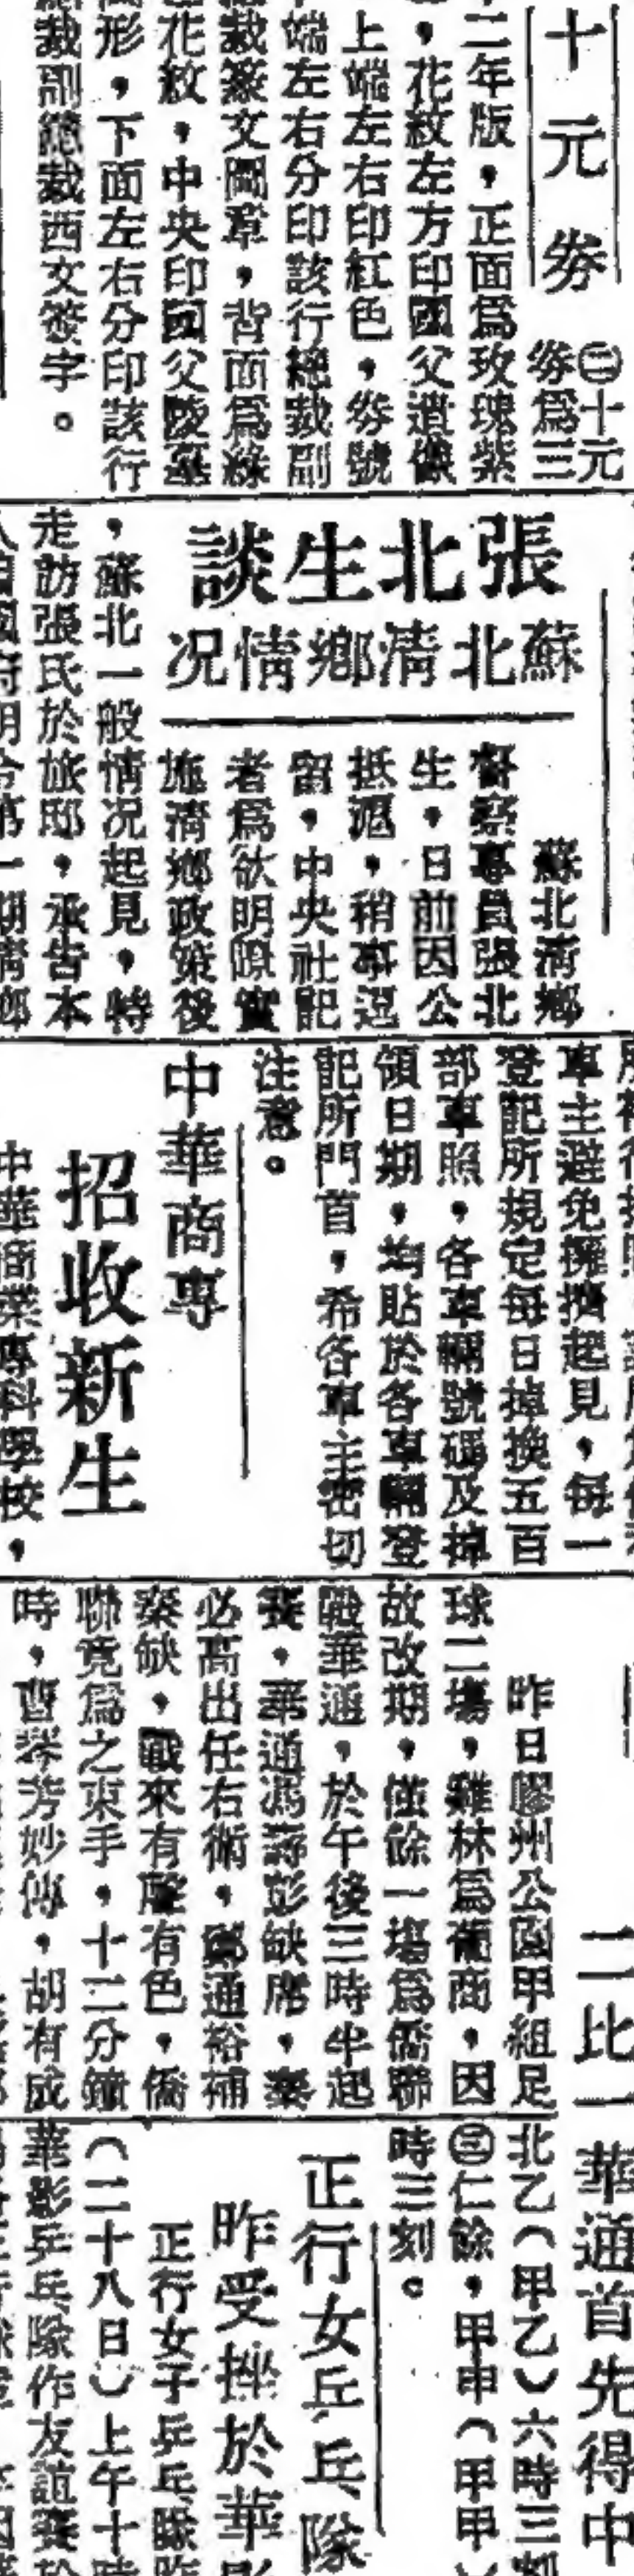 十元券
㊁十元
券為三
十二年版，正面為玫瑰紫
，花紋左方印國父遺像
上端左右印紅色，券號
端左右分印該行總裁副
裁篆文圖章，背面為綠
花紋，中央印國父陵墓
形，下面左右分印該行
總裁副總裁西文簽字。
張北生談
蘇北清鄉情况
蘇北清鄉
督察專員張北
生，日前因公
抵滬，稍事逗
留，中央社記
者為欲明瞭實
施清鄉政策後
，蘇北一般情况起見，特
走訪張氏於旅邸，承告本
車主避免擁擠起見，每一
登記所規定每日掉換五百
部車照，各車輛號碼及掉
領日期，均貼於各車輛登
記所門首，希各車主密切
注意。
中華商專
招收新生
中華商業專科學校，
二比一華通首先得中
昨日膠州公園甲組足
球二場，雞林爲葡商，因
故改期，僅餘一場爲僑聯
戰華通，於午後三時半起
賽，華通馮壽彭缺席，秦
必高出任右衛，鄭通裕補
秦缺，戰來有聲有色，僑
聯竟爲之束手，十二分鐘
時，曹琴芳妙傳，胡有成
北乙（甲乙）六時三刻
㊂仁餘，甲申（甲甲）
時三刻。
正行女乒乓隊
昨受挫於華影
正行女子乒乓隊昨
（二十八日）上午十時
華影乒乓隊作友誼賽於